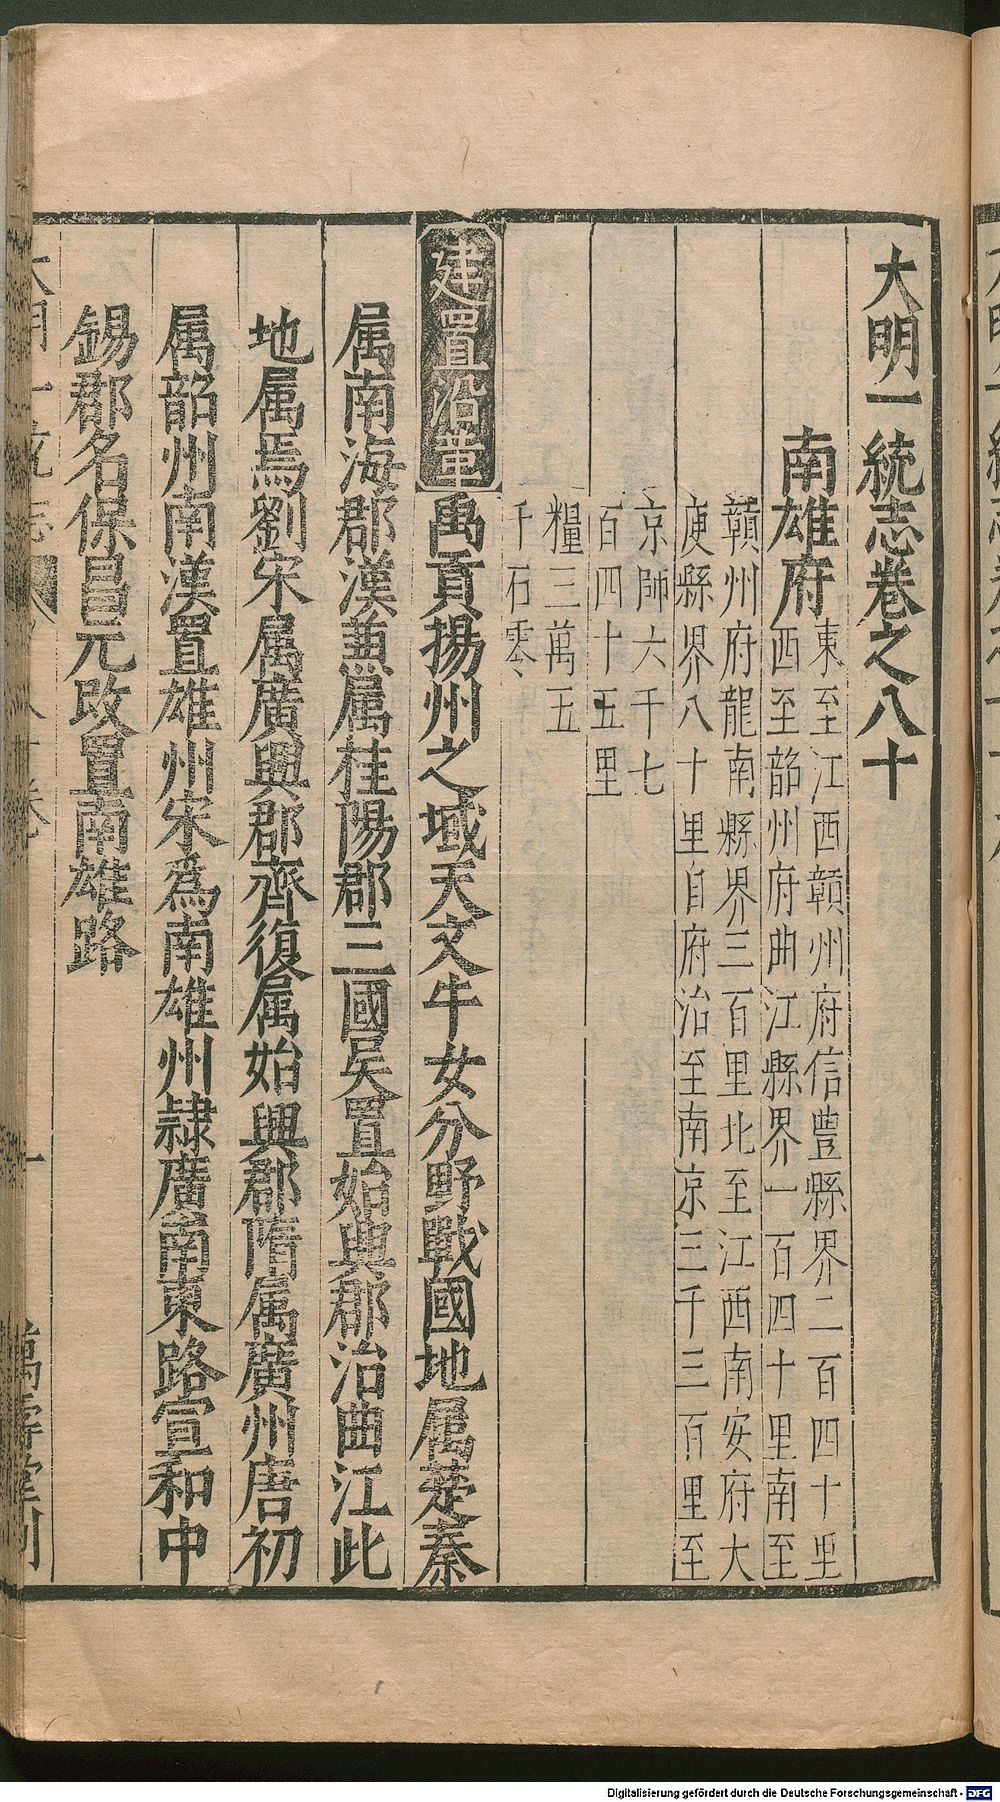 大明一統志卷之八十
南雄府
東至江西贛州府信豐縣界二百四十里
西至韶州府曲江縣界一百四十里南至
贛州府龍南縣界三百里北至江西南安府大
庾縣界八十里自府治至南京三千三百里至
京師六千七
百四十五里
糧三萬五
千石零
建置沿革
禹貢揚州之域天文牛女分野戰國地属楚秦
属南海郡漢兼属桂陽郡三國吳置始興郡治曲江此
地属焉劉宋属廣興郡齊復属始興郡隋属廣州唐初
属韶州南漢置雄州宋爲南雄州隷廣南東路宣和中
錫郡名保昌元改置南雄路
大明一統志
一
萬壽堂刊
Digitalisierung gefördert durch die Deutsche Forschungsgemeinschaft - DFG